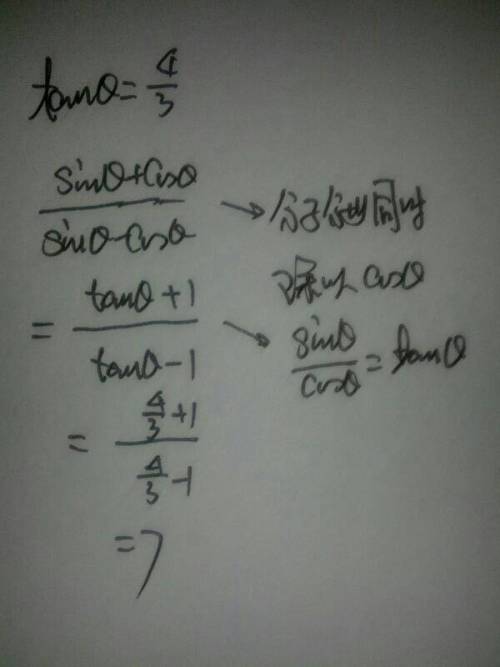 tanθ=4/3
sinθ+cosθ/sinθ-cosθ → 分子分母同时
除以cosθ
= tanθ+1/tanθ-1 → sinθ/cosθ=tanθ
= 4/3+1/4/3-1
=7